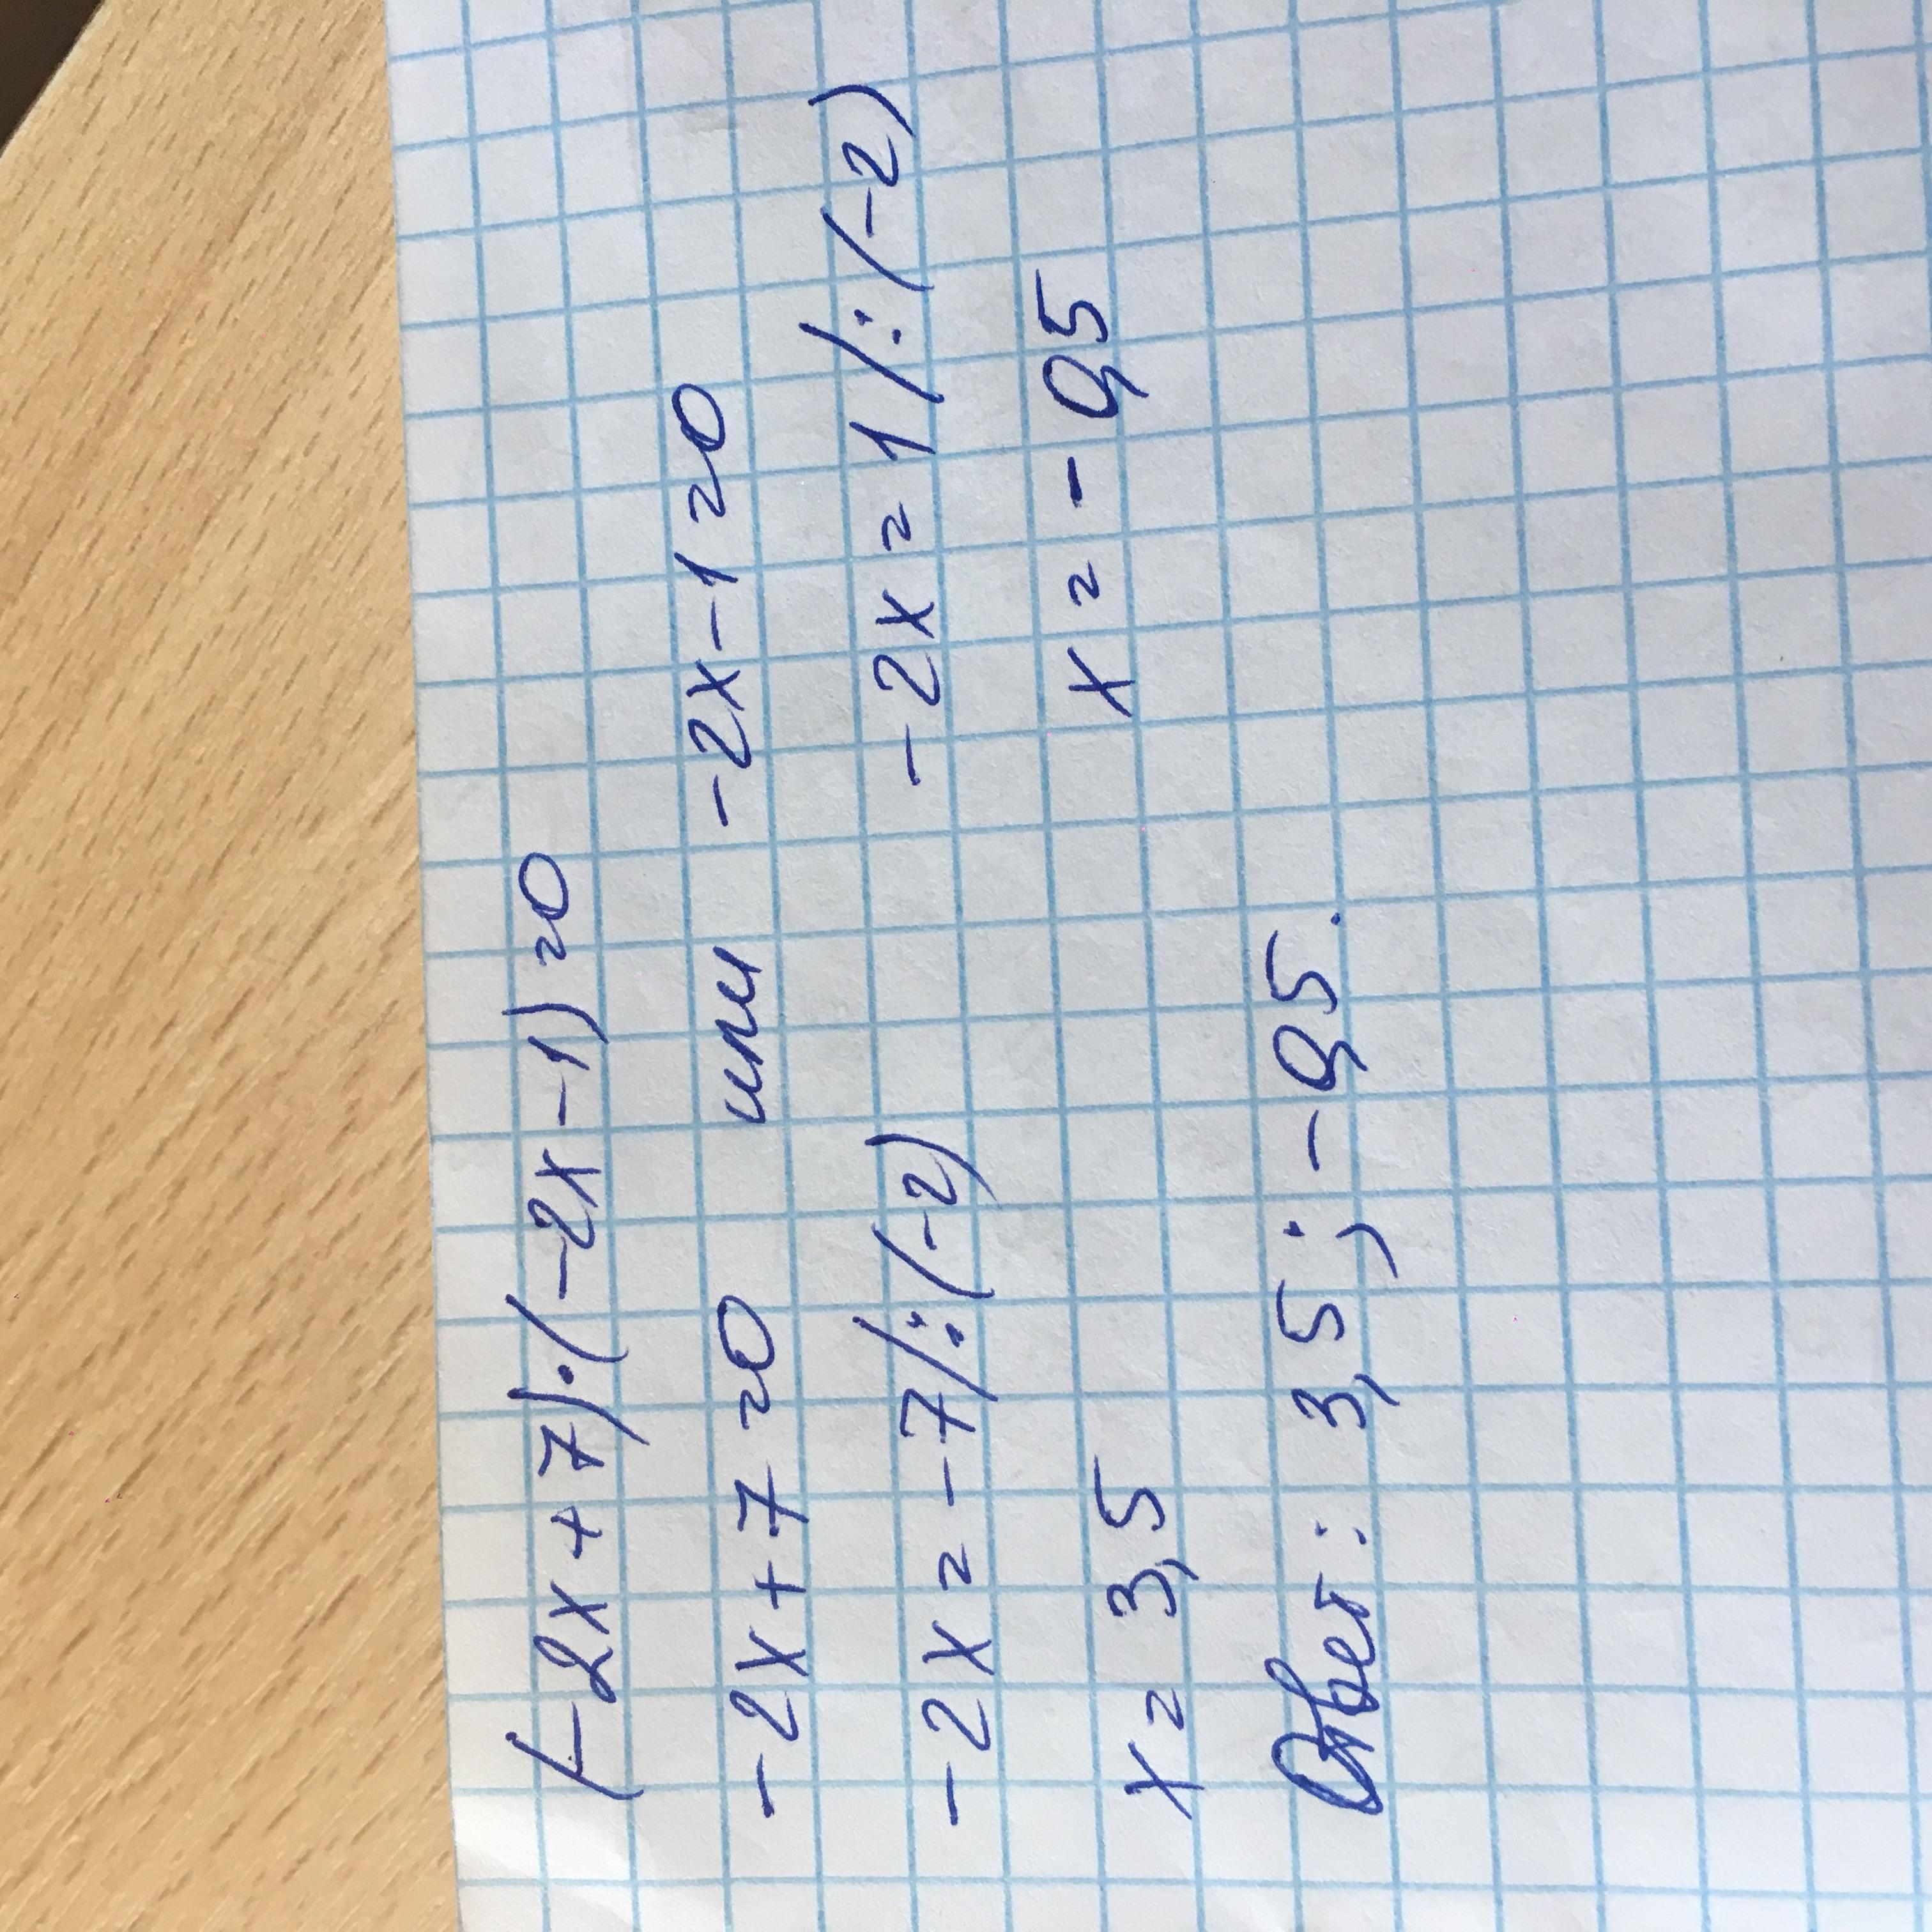 (-2x+7)·(-2x-1)=0
-2x+7=0 или -2x-1=0
-2x=-7/:(-2) -2x=1/:(-2)
x=3,5 x=-0,5
Ответ: 3,5; -0,5.